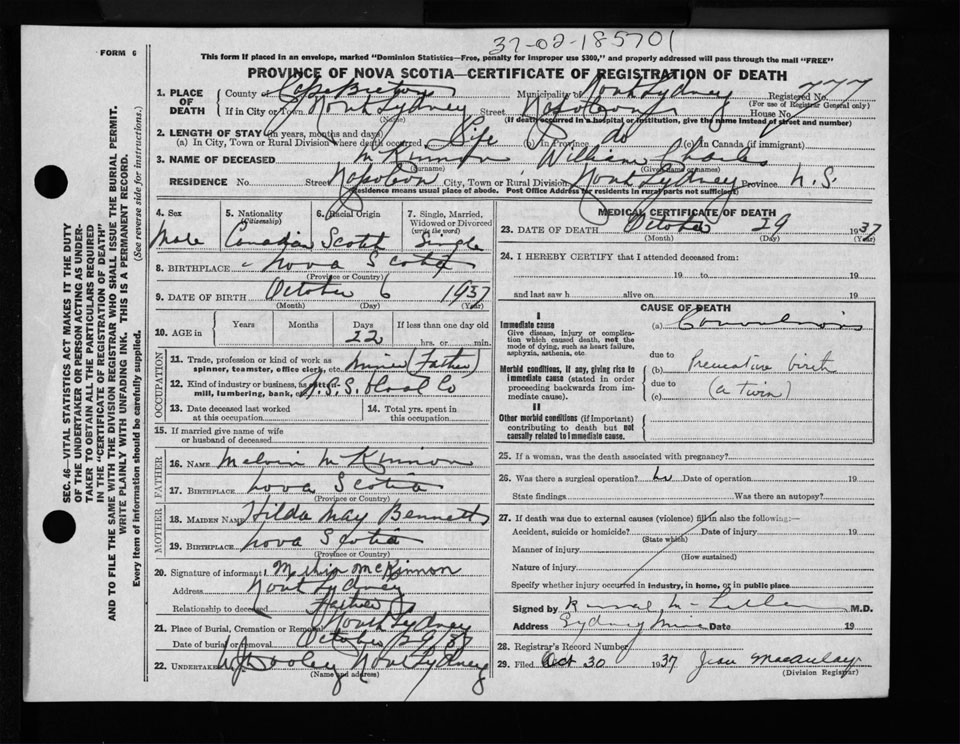 37-02-185701
FORM 6
This form if placed in an envelope, marked "Dominion Statistics—Free, penalty for improper use $300," and properly addressed will pass through the mail "FREE"
PROVINCE OF NOVA SCOTIA—CERTIFICATE OF REGISTRATION OF DEATH
SEC. 46—VITAL STATISTICS ACT MAKES IT THE DUTY
OF THE UNDERTAKER OR PERSON ACTING AS UNDER-
TAKER TO OBTAIN ALL THE PARTICULARS REQUIRED
IN THE "CERTIFICATE OF REGISTRATION OF DEATH"
AND TO FILE THE SAME WITH THE DIVISION REGISTRAR WHO SHALL ISSUE THE BURIAL PERMIT.
WRITE PLAINLY WITH UNFADING INK. THIS IS A PERMANENT RECORD.
Every item of information should be carefully supplied. (See reverse side for instructions.)
1. PLACE OF DEATH County of Cape Breton Municipality of North Sydney Registered No. 777
(For use of Registrar General only)
If in City or Town North Sydney Street Napoleon House No.
(Name) (If death occurred in a hospital or institution, give the name instead of street and number)
2. LENGTH OF STAY (in years, months and days)
(a) In City, Town or Rural Division where death occurred Life (b) In Province do (c) In Canada (if immigrant)
3. NAME OF DECEASED McKinnon William Charles
(Surname) (Given name or names)
RESIDENCE No. Street Napoleon City, Town or Rural Division North Sydney Province N.S.
(Residence means usual place of abode. Post Office Address for Residents in rural parts not sufficient)
4. Sex 5. Nationality (Citizenship) 6. Racial Origin 7. Single, Married, Widowed or Divorced (write the word)
Male Canadian Scotch Single
8. BIRTHPLACE Nova Scotia
(Province or Country)
9. DATE OF BIRTH October 6 1937
(Month) (Day) (Year)
10. AGE in Years Months Days If less than one day old
22 hrs. or min.
OCCUPATION
11. Trade, profession or kind of work as spinner, teamster, office clerk, etc. Miner (Father)
12. Kind of industry or business, as cotton mill, lumbering, bank, etc. N.S.S. & Coal Co
13. Date deceased last worked at this occupation 14. Total yrs. spent in this occupation
15. If married give name of wife or husband of deceased
FATHER
16. NAME Melvin McKinnon
17. BIRTHPLACE Nova Scotia
(Province or Country)
MOTHER
18. MAIDEN NAME Hilda May Bennett
19. BIRTHPLACE Nova Scotia
(Province or Country)
20. Signature of informant Melvin McKinnon
Address North Sydney
Relationship to deceased Father
21. Place of Burial, Cremation or Removal North Sydney
Date of burial or removal October 29 37
22. UNDERTAKER Dooley North Sydney
(Name and address)
MEDICAL CERTIFICATE OF DEATH
23. DATE OF DEATH October 29 1937
(Month) (Day) (Year)
24. I HEREBY CERTIFY that I attended deceased from:
19 to 19
and last saw h alive on 19
CAUSE OF DEATH
I
Immediate cause (a) Convulsions
Give disease, injury or complication which caused death, not the mode of dying, such as heart failure, asphyxia, asthenia, etc
due to
Morbid conditions, if any, giving rise to immediate cause (stated in order proceeding backwards from immediate cause). (b) Premature birth
due to (a twin)
(c)
II
Other morbid conditions (if important) contributing to death but not causally related to immediate cause.
25. If a woman, was the death associated with pregnancy?
26. Was there a surgical operation? No Date of operation 19
State findings Was there an autopsy?
27. If death was due to external causes (violence) fill in also the following:—
Accident, suicide or homicide? Date of injury 19
(State which)
Manner of injury
(How sustained)
Nature of injury
Specify whether injury occurred in industry, in home, or in public place
Signed by M.D.
Address Sydney Mines Date 19
28. Registrar's Record Number
29. Filed Oct 30 1937 Jean Macaulay
(Division Registrar)